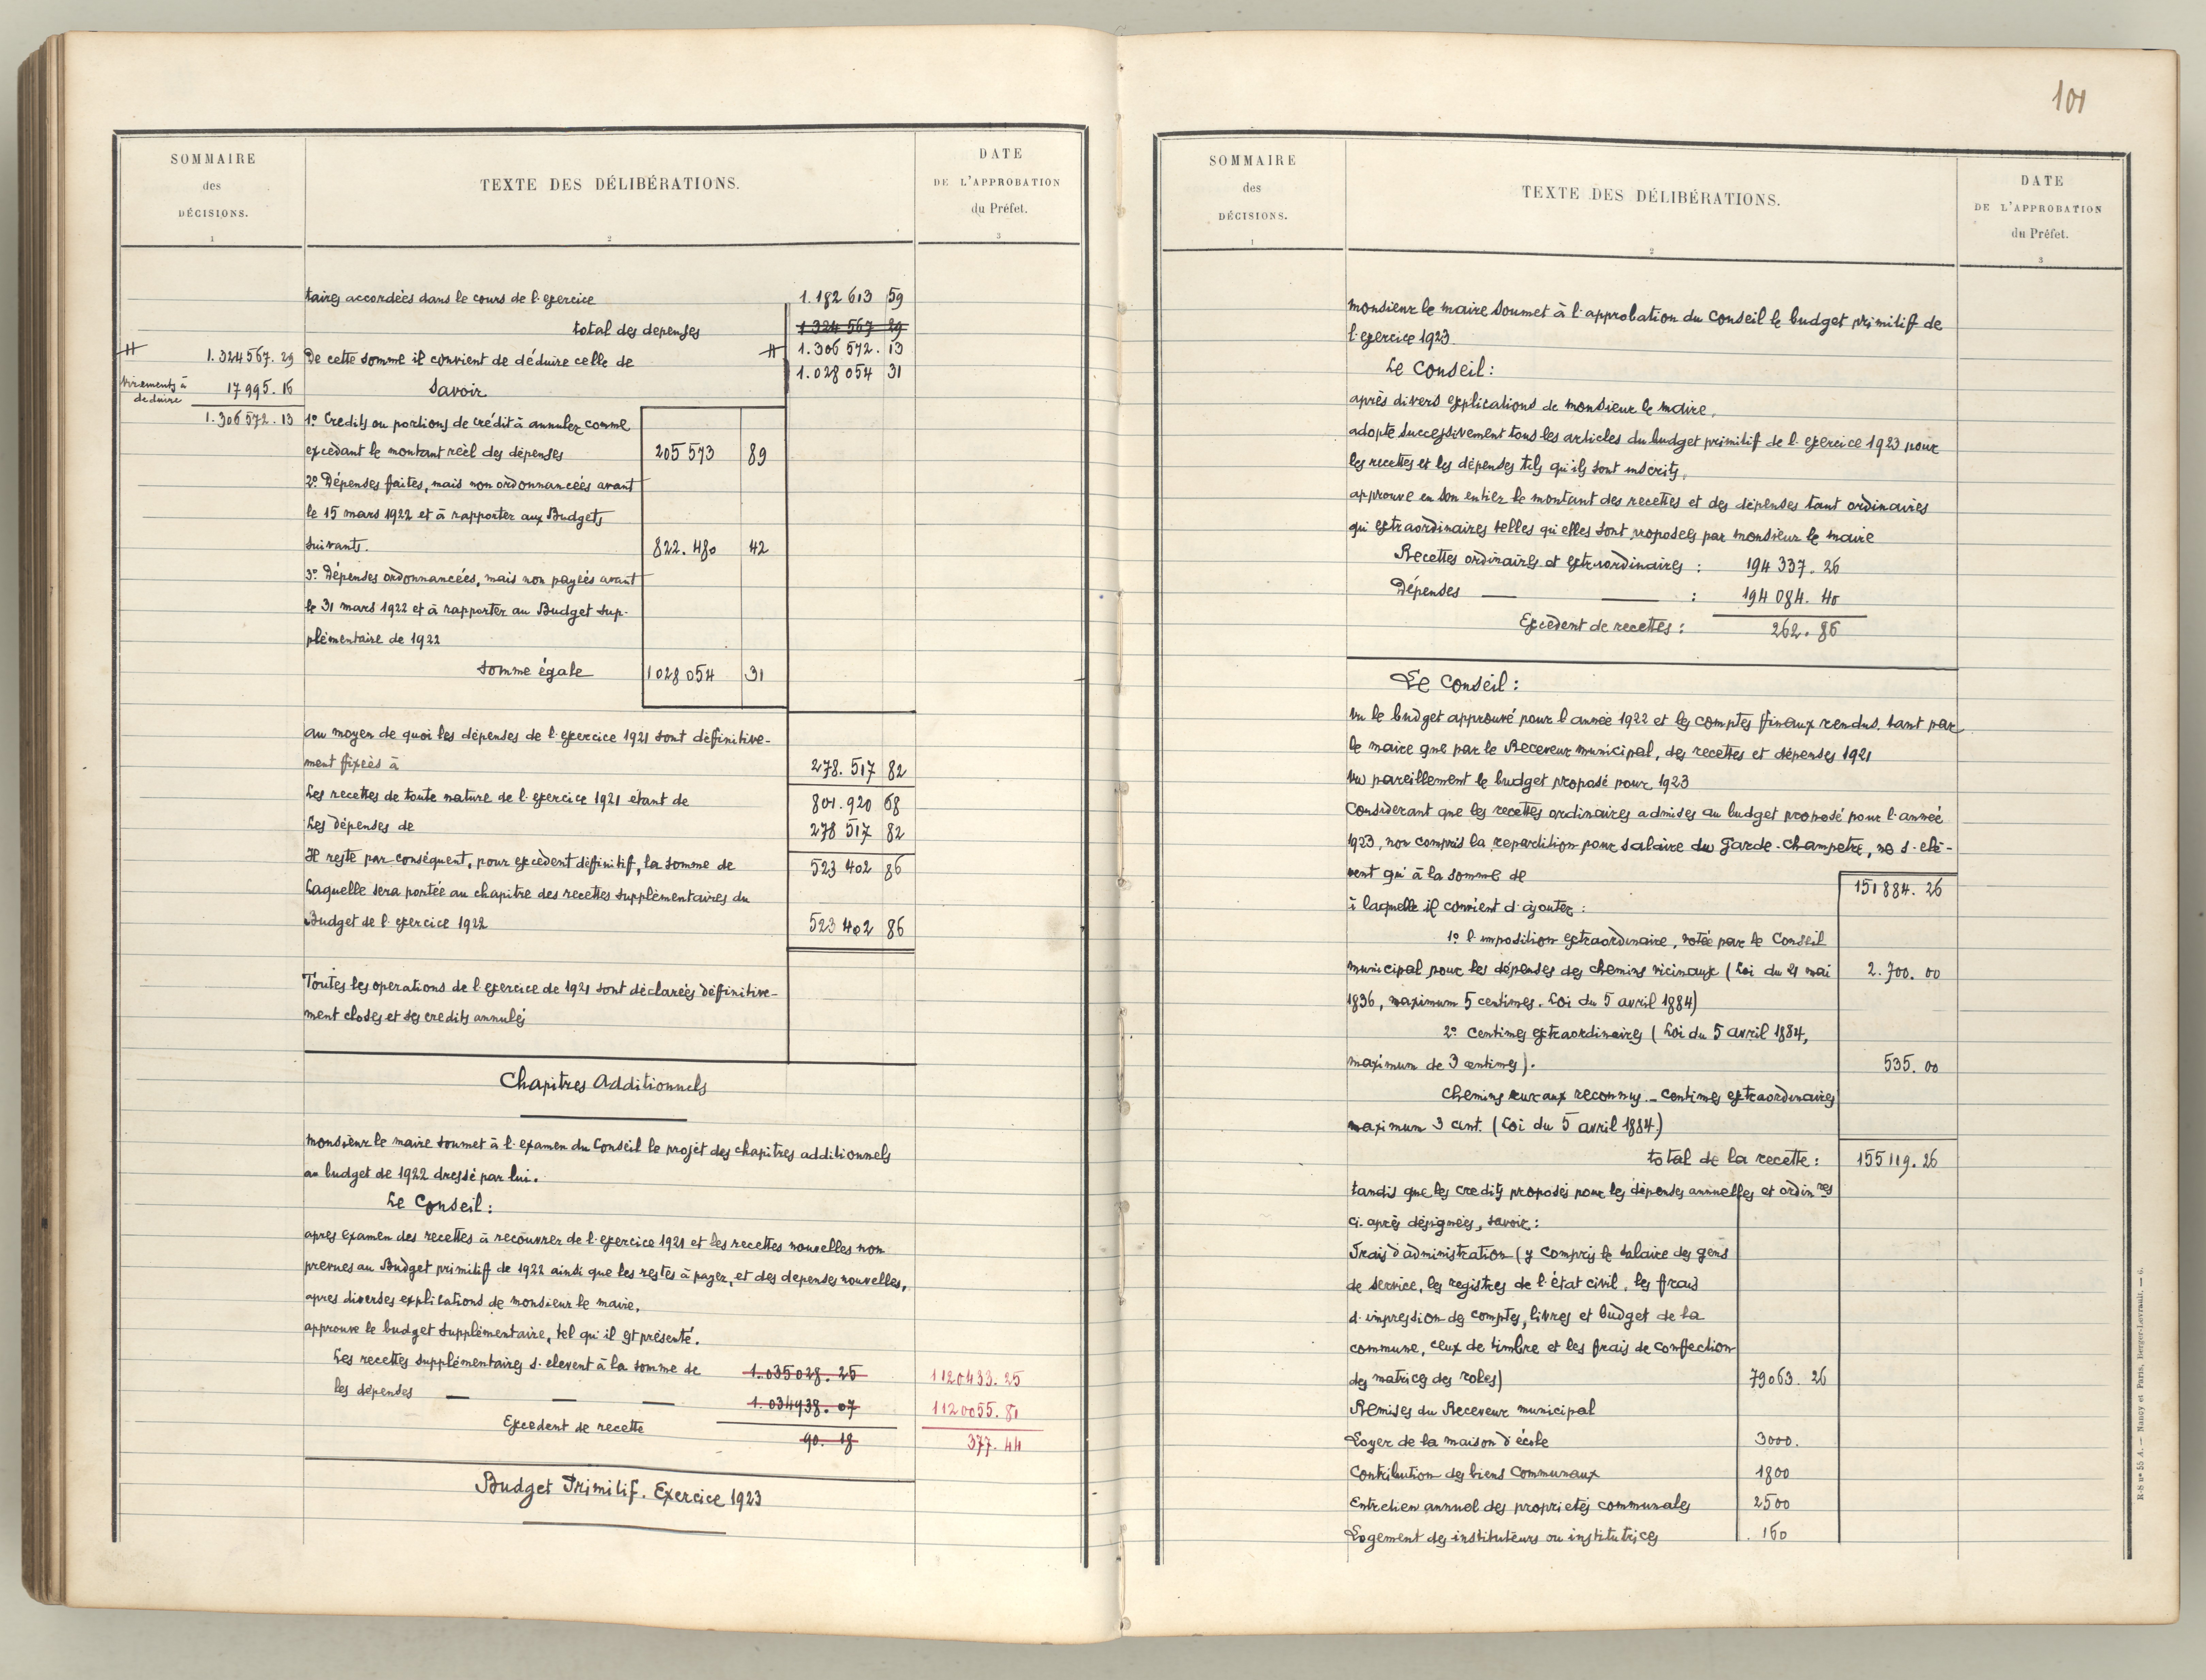 SOMMAIRE
des
DÉCISIONS.
1
TEXTE DES DÉLIBÉRATIONS.
2
DATE
DE L'APPROBATION
du Préfet.
3
taires accordées dans le cours de l'exercice 1.182 613 59
total des depenses 1 324 567 29
H 1.324567.29 De cette somme il convient de déduire celle de H 1.306 572. 13
1.028 054 31
Virements à deduire 17995.16 Savoir
1.306572.13 1° Credits ou portions de crédit à annuler comme
excédant le montant réèl des dépenses 205 573 89
2° Dépenses faites, mais non ordonnanceés avant
le 15 mars 1922 et à rapporter aux Budgets
suivants. 822.480 42
3° Dépenses ordonnancées, mais non payeés avant
le 31 mars 1922 et à rapporter au Budget sup-
plémentaire de 1922
somme égale 1028 054 31
au moyen de quoi les dépenses de l'exercice 1921 sont définitive-
ment fixeés à 278.517 82
Les recettes de toute nature de l'exercice 1921 étant de 801.920 68
Les dépenses de 278 517 82
Il reste par conséquent, pour excèdent définitif, la somme de 523 402 86
Laquelle sera portée au chapitre des recettes supplémentaires du
Budget de l'exercice 1922 523 402 86
Toutes les operations de l'exercice de 1921 sont déclareés définitive-
ment closes et ses credits annulés
Chapitres Additionnels
monsieur le maire soumet à l'examen du Conseil le projet des chapitres additionnels
au budget de 1922 dressé par lui.
Le Conseil :
apres examen des recettes à recouvrer de l'exercice 1921 et les recettes nouvelles non
prevues au Budget primitif de 1922 ainsi que les restes à payer, et des depenses nouvelles,
apres diverses explications de monsieur le maire,
approuve le budget supplémentaire, tel qu'il est présenté.
Les recettes supplémentaires s'elevent à la somme de 1.035028.25 1120433.25
les dépenses — — — 1.034938.07 1120055.81
Excedent de recette 90.18 377.44
Budget Primitif. Exercice 1923
101
SOMMAIRE
des
DÉCISIONS.
1
TEXTE DES DÉLIBÉRATIONS.
2
DATE
DE L'APPROBATION
du Préfet.
3
monsieur le maire soumet à l'approbation du conseil le budget primitif de
l'exercice 1923
Le Conseil :
après divers explications de monsieur le maire,
adopte successivement tous les articles du budget primitif de l'exercice 1923 pour
les recettes et les dépenses tels qu'ils sont inscrits,
approuve en son entier le montant des recettes et des dépenses tant ordinaires
qu'extraordinaires telles qu'elles sont proposeés par monsieur le maire
Recettes ordinaires et extraordinaires : 194 337.26
Dépenses — — : 194 084.40
Excèdent de recettes : 262.86
Le Conseil :
Vu le budget approuvé pour l'année 1922 et les comptes finaux rendus, tant par
le maire que par le Receveur municipal, des recettes et dépenses 1921
Vu pareillement le budget proposé pour 1923
Considerant que les recettes ordinaires admises au budget proposé pour l'anneé
1923, non compris la repartition pour salaire du Garde-Champetre, ne s'elè-
vent qu'à la somme de 151884.26
à laquelle il convient d'ajouter :
1° l'imposition extraordinaire, votée par le Conseil
municipal pour les dépenses des chemins vicinaux (Loi du 21 mai 2.700.00
1836, maximum 5 centimes. Loi du 5 avril 1884)
2° Centimes extraordinaires (Loi du 5 avril 1884,
maximum de 3 centimes). 535.00
Chemins ruraux reconnus. — Centimes extraordinaires
maximum 3 cent. (Loi du 5 avril 1884)
total de la recette : 155119.26
tandis que les credits proposés pour les dépenses annuelles et ordinres
ci-après désigneés, savoir :
Frais d'administration (y compris le salaire des gens
de service, les registres de l'état civil, les frais
d'impression des comptes, livres et budget de la
commune, ceux de timbre et les frais de confection
des matrices des roles) 79063.26
Remises du Receveur municipal
Loyer de la maison d'école 3000.
Contribution des biens communaux 1800
Entretien annuel des proprietés communales 2500
Logement des instituteurs ou institutrices 160
R-S n° 55 A. — Nancy et Paris, Berger-Levrault. — 6.